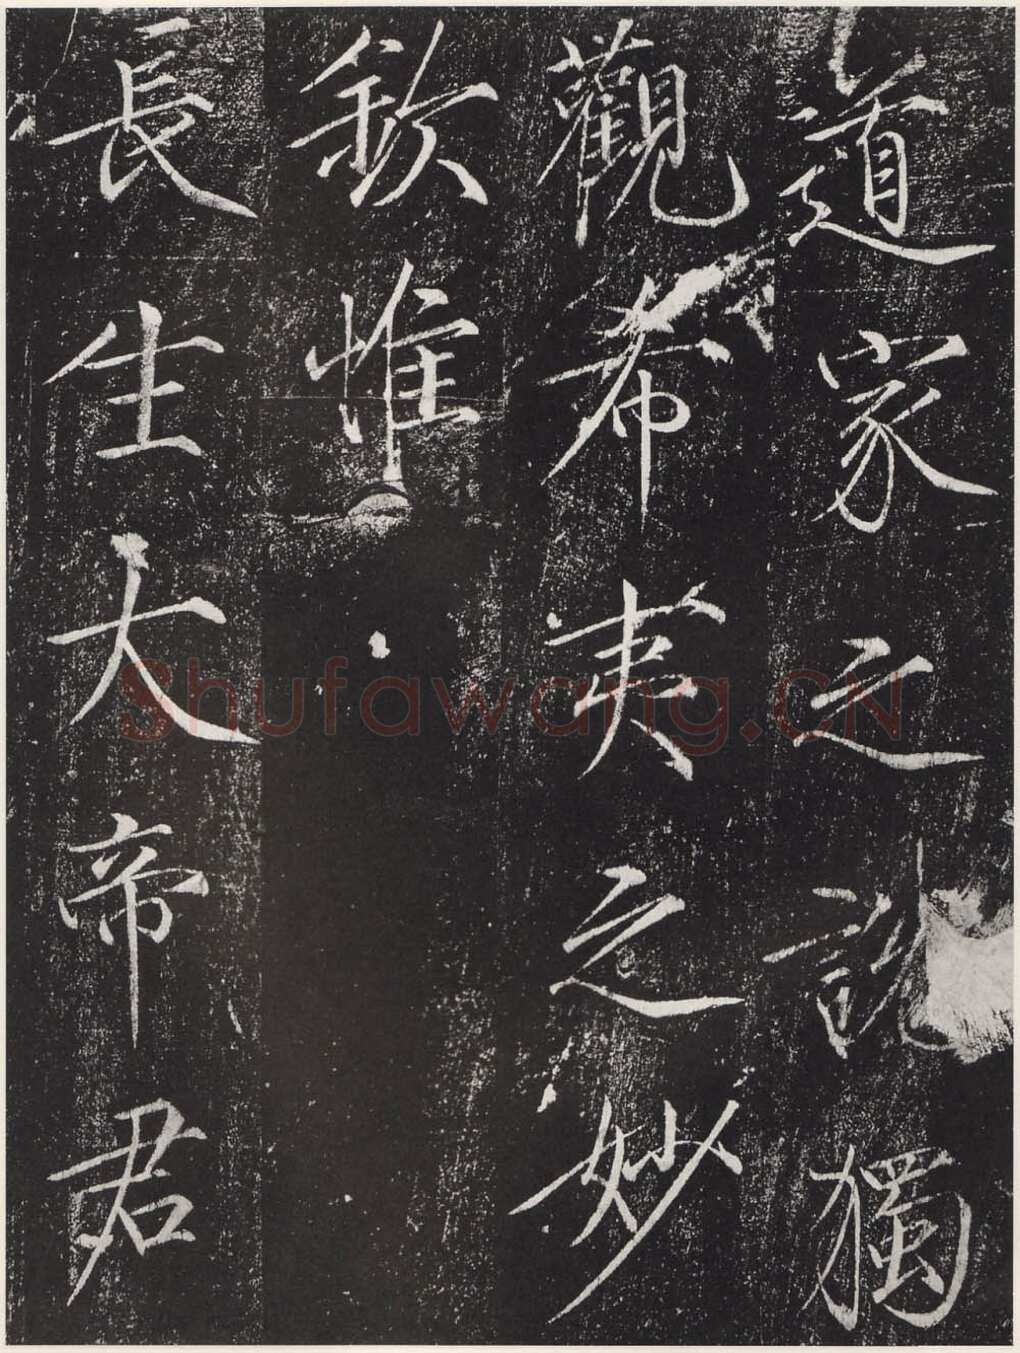 道家之說獨
觀希夷之妙
欽惟
長生大帝君
Shufawang.CN